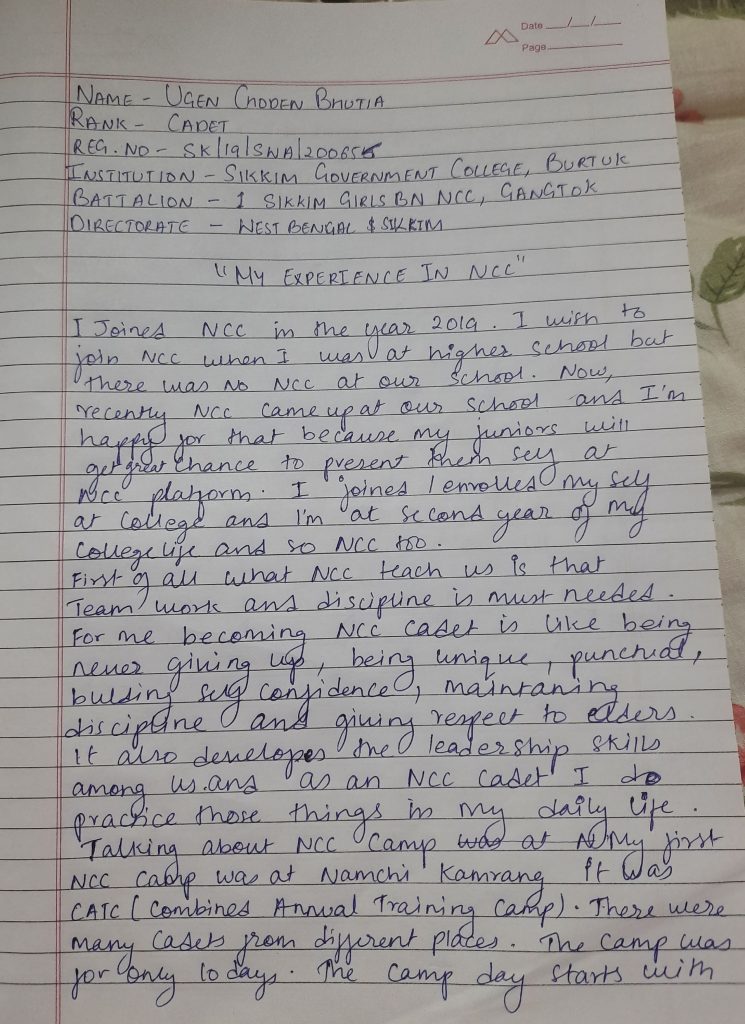 Date __/__/__
Page
NAME - UGEN CHODEN BHUTIA
RANK - CADET
REG. NO - SK/19/SWA/200655
INSTITUTION - SIKKIM GOVERNMENT COLLEGE, BURTUK
BATTALION - 1 SIKKIM GIRLS BN NCC, GANGTOK
DIRECTORATE - WEST BENGAL & SIKKIM
"MY EXPERIENCE IN NCC"
I Joined NCC in the year 2019. I wish to
join NCC when I was at higher school but
there was no NCC at our school. Now,
recently NCC came up at our school and I'm
happy for that because my juniors will
get great chance to present them self at
NCC platform. I joined / enrolled my self
at college and I'm at second year of my
college life and so NCC too.
First of all what NCC teach us is that
Team work and discipline is must needed.
For me becoming NCC cadet is like being
never giving up, being unique, punctual,
bulding self confidence, maintaning
discipline and giving respect to elders.
It also developes the leadership skills
among us. and as an NCC cadet I do
practice those things in my daily life.
Talking about NCC Camp was at N My first
NCC camp was at Namchi Kamrang it was
CATC (Combined Annual Training Camp). There were
many Cadets from different places. The Camp was
for only 10 days. The camp day starts with